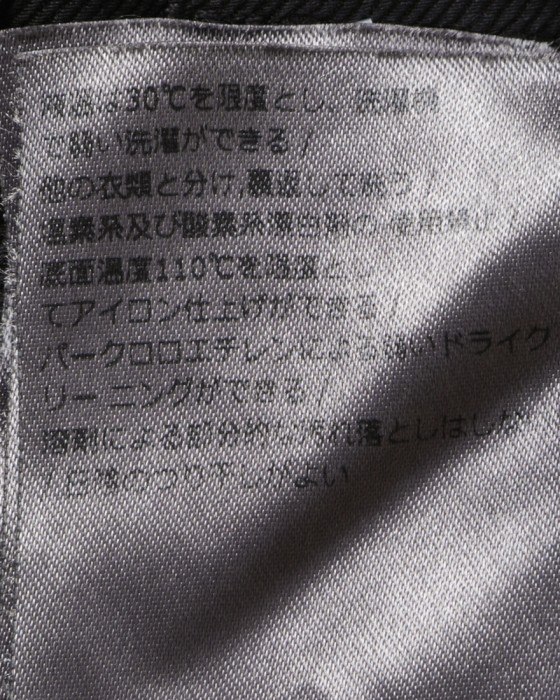 液温は30℃を限度とし、洗濯機
で弱い洗濯ができる /
他の衣類と分け,裏返して洗う /
塩素系及び酸素系漂白剤の 使用禁止 /
底面温度110℃を限度とし
てアイロン仕上げができる /
パークロロエチレンによる弱いドライク
リー ニングができる /
溶剤による部分的な汚れ落としはしない
/ 日陰のつり干しがよい